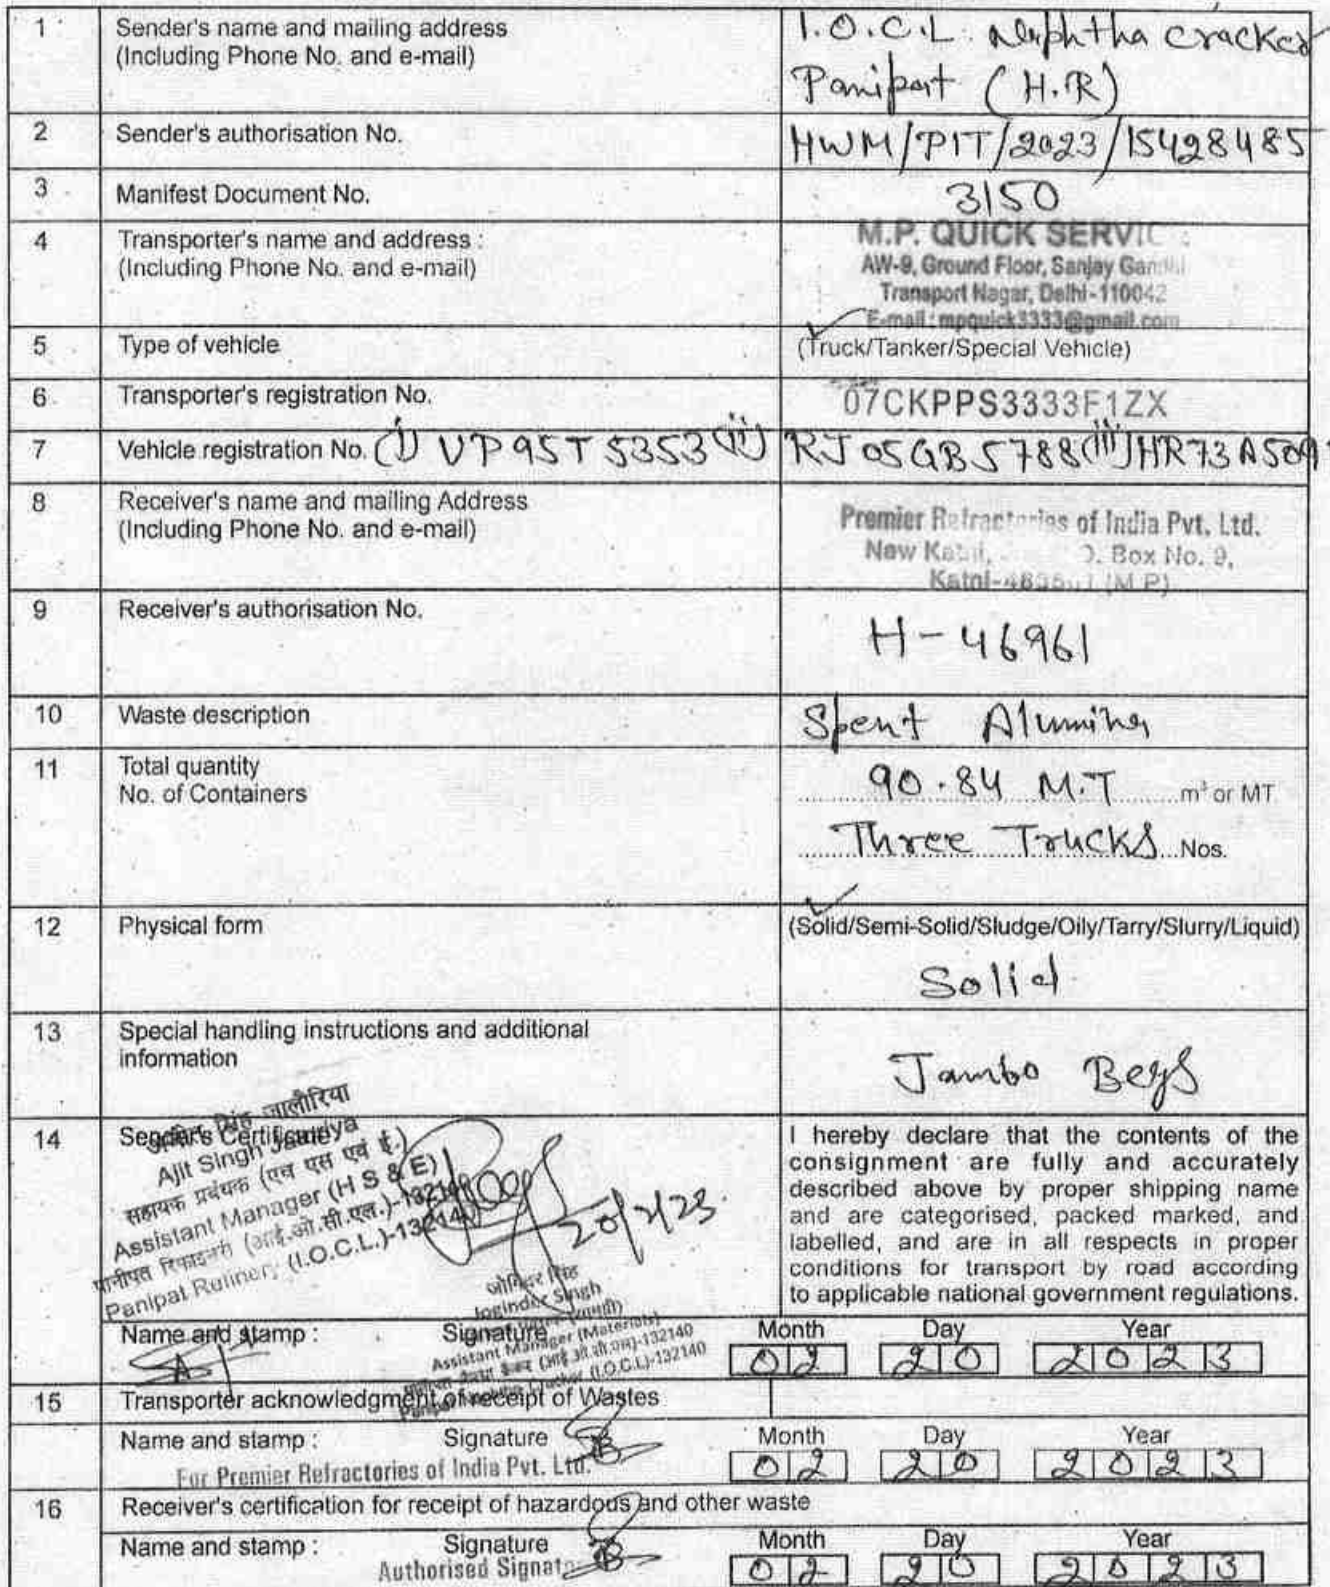 1 Sender's name and mailing address
(Including Phone No. and e-mail)
I.O.C.L. Naphtha Cracker
Panipat (H.R)
2 Sender's authorisation No. HWM/PIT/2023/15428485
3 Manifest Document No. 3150
4 Transporter's name and address :
(Including Phone No. and e-mail)
M.P. QUICK SERVIC
AW-9, Ground Floor, Sanjay Gandhi
Transport Nagar, Delhi-110042
E-mail : mpquick3333@gmail.com
5 Type of vehicle (Truck/Tanker/Special Vehicle)
6 Transporter's registration No. 07CKPPS3333F1ZX
7 Vehicle registration No. (i) UP95T5353 (ii) RJ05GB5788 (iii) HR73A509
8 Receiver's name and mailing Address
(Including Phone No. and e-mail)
Premier Refractories of India Pvt. Ltd.
New Katni, O. Box No. 9,
Katni- (M.P)
9 Receiver's authorisation No.
H-46961
10 Waste description Spent Alumina
11 Total quantity 90.84 M.T m³ or MT
No. of Containers
Three Trucks Nos.
12 Physical form (Solid/Semi-Solid/Sludge/Oily/Tarry/Slurry/Liquid)
Solid
13 Special handling instructions and additional
information
Jambo Begs
14 Sender's Certificate
सिंह जालौरिया
Ajit Singh
सहायक प्रबंधक (एच एस एवं ई.)
Assistant Manager (H S & E)
पानीपत रिफाइनरी (आई.ओ.सी.एल.)-132140
Panipat Refinery (I.O.C.L.)-132140
20/2/23
जोगिंदर सिंह
Joginder Singh
Assistant Manager (Materials)
Panipat Naphtha Cracker (I.O.C.L)-132140
I hereby declare that the contents of the
consignment are fully and accurately
described above by proper shipping name
and are categorised, packed marked, and
labelled, and are in all respects in proper
conditions for transport by road according
to applicable national government regulations.
Name and stamp : Signature Month Day Year
02 20 2023
15 Transporter acknowledgment of receipt of Wastes
Name and stamp : Signature Month Day Year
For Premier Refractories of India Pvt. Ltd. 02 20 2023
16 Receiver's certification for receipt of hazardous and other waste
Name and stamp : Signature Month Day Year
Authorised Signat 02 20 2023